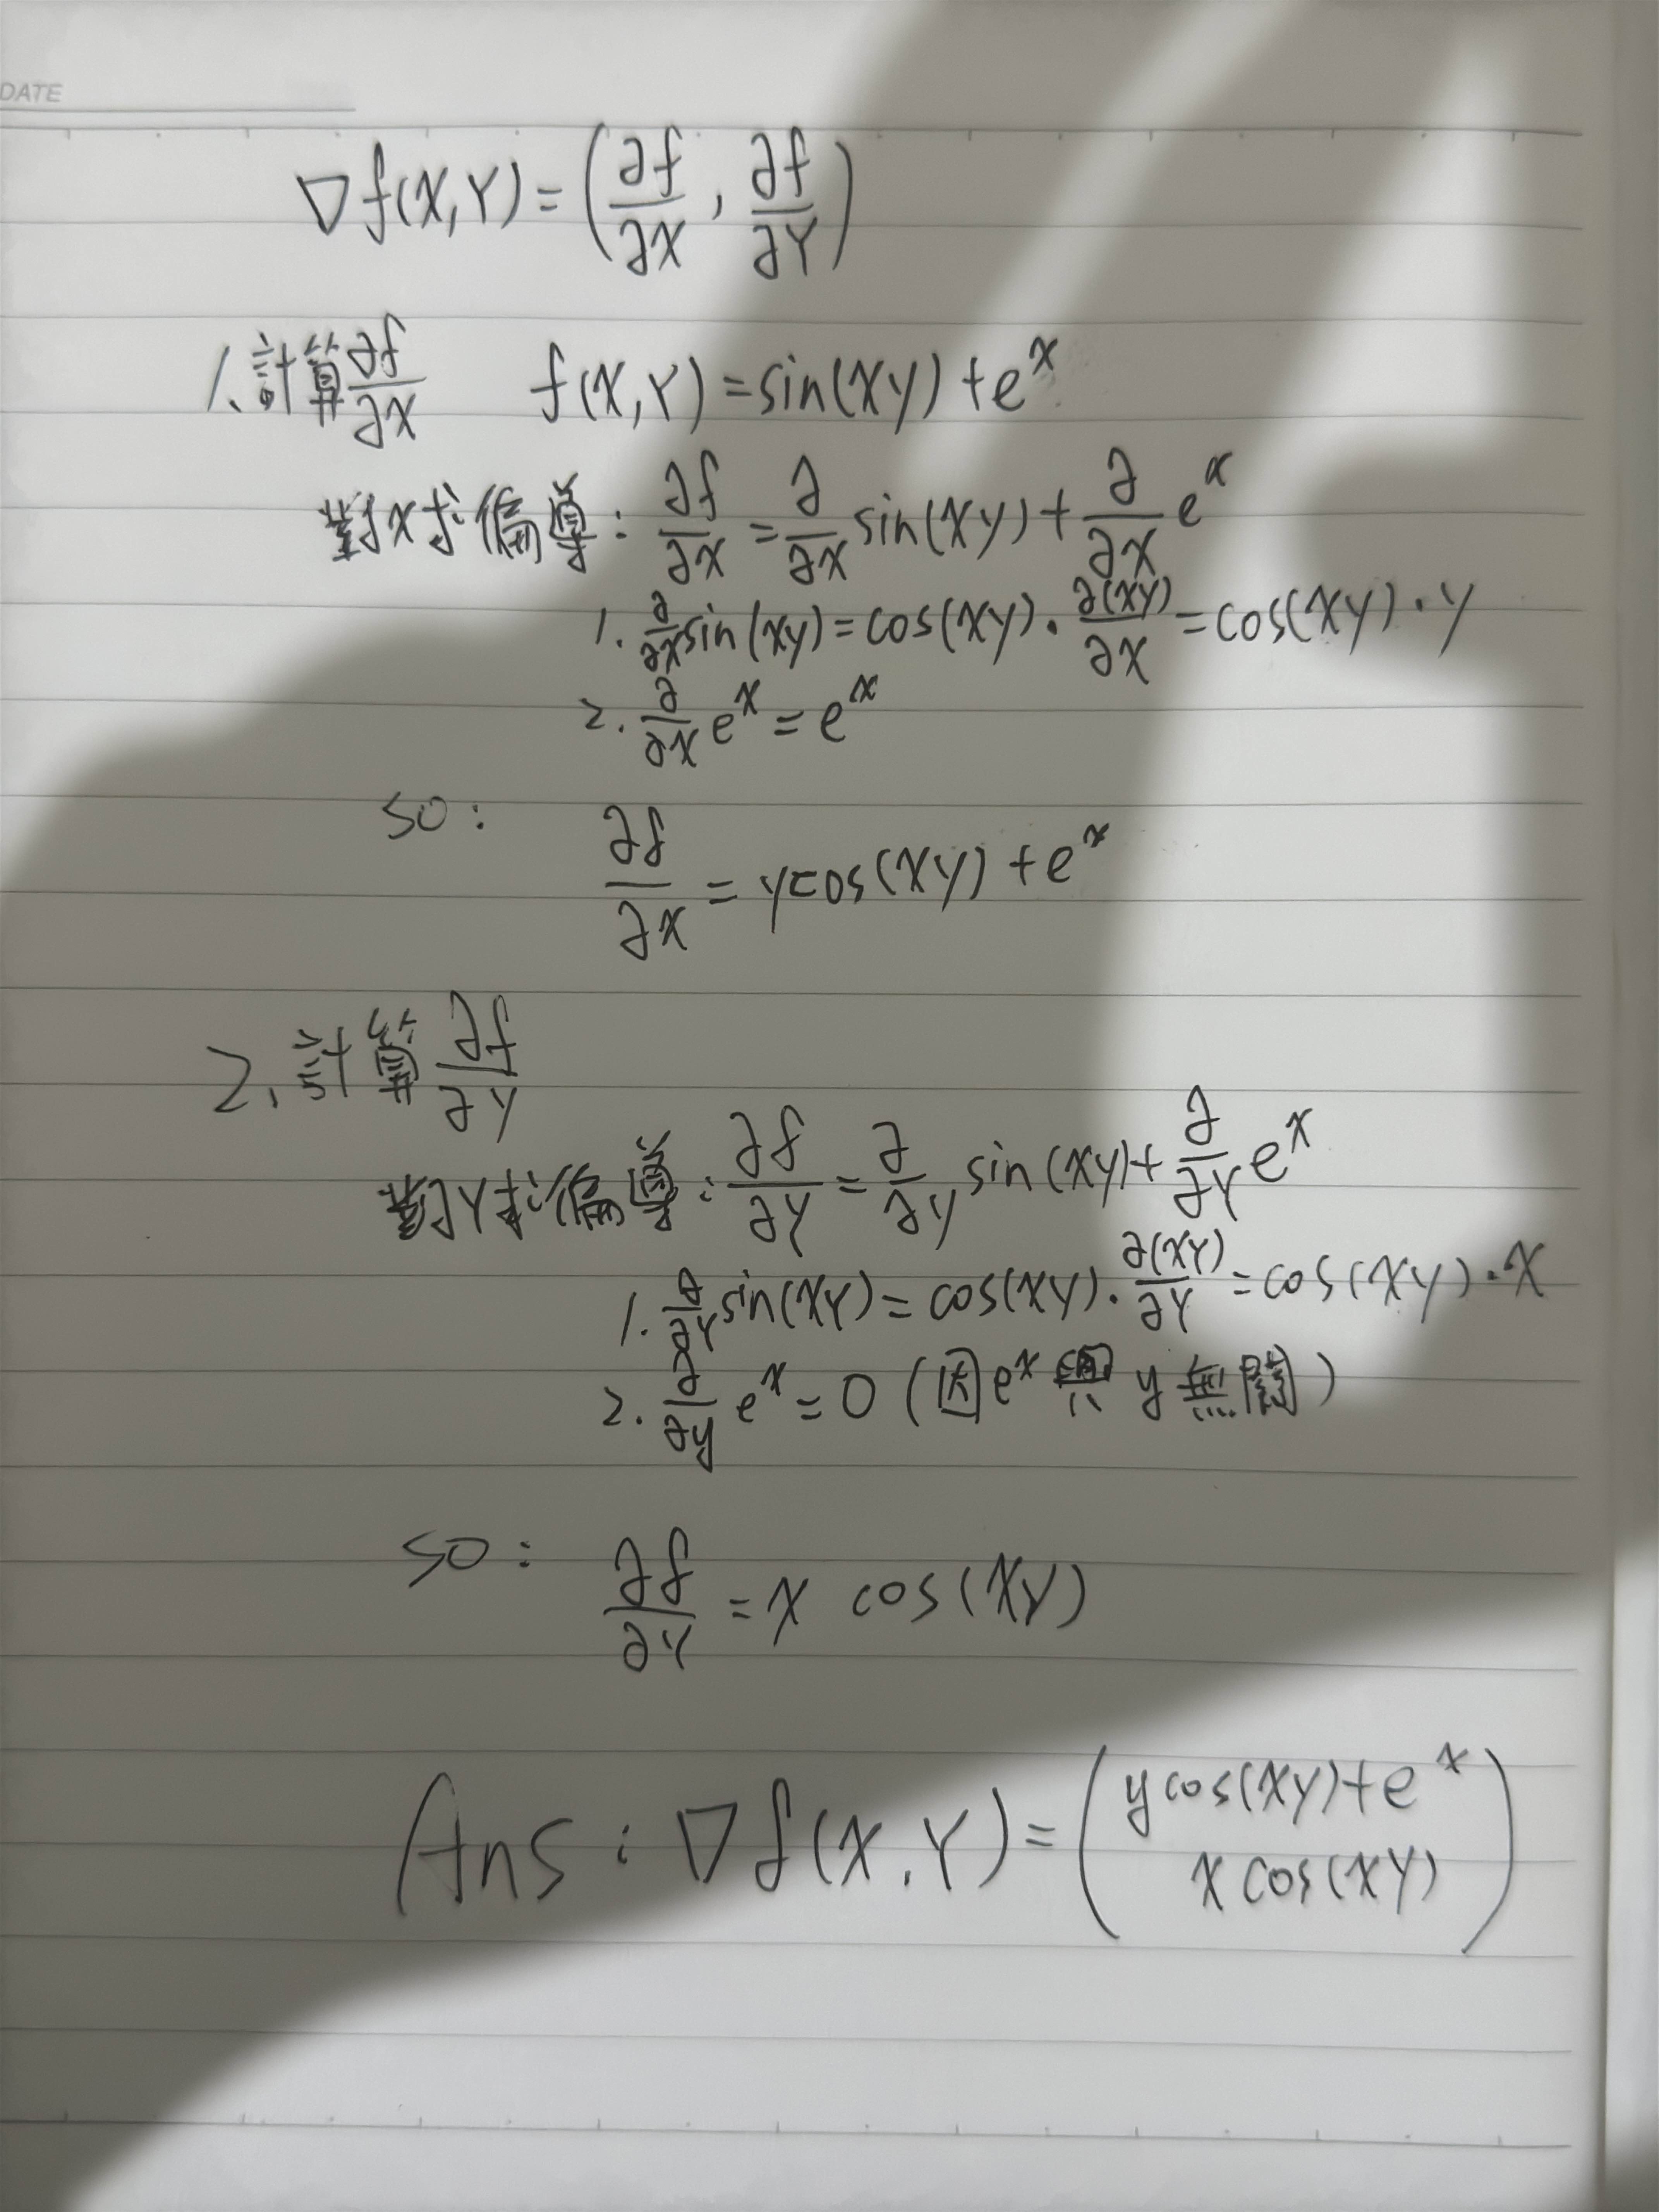 DATE
∇f(X,Y)=(∂f/∂X, ∂f/∂Y)
1.計算∂f/∂X f(X,Y)=sin(XY)+e^x
對X求偏導:∂f/∂X=∂/∂X sin(XY)+∂/∂X e^x
1. ∂/∂X sin(XY)=cos(XY)·∂(XY)/∂X=cos(XY)·Y
2. ∂/∂X e^x=e^x
so: ∂f/∂X=ycos(XY)+e^x
2.計算∂f/∂Y
對Y求偏導:∂f/∂Y=∂/∂Y sin(XY)+∂/∂Y e^x
1. ∂/∂Y sin(XY)=cos(XY)·∂(XY)/∂Y=cos(XY)·X
2. ∂/∂y e^x=0(因e^x與y無關)
so: ∂f/∂Y=X cos(XY)
Ans:∇f(X,Y)=(ycos(XY)+e^x
xcos(XY))